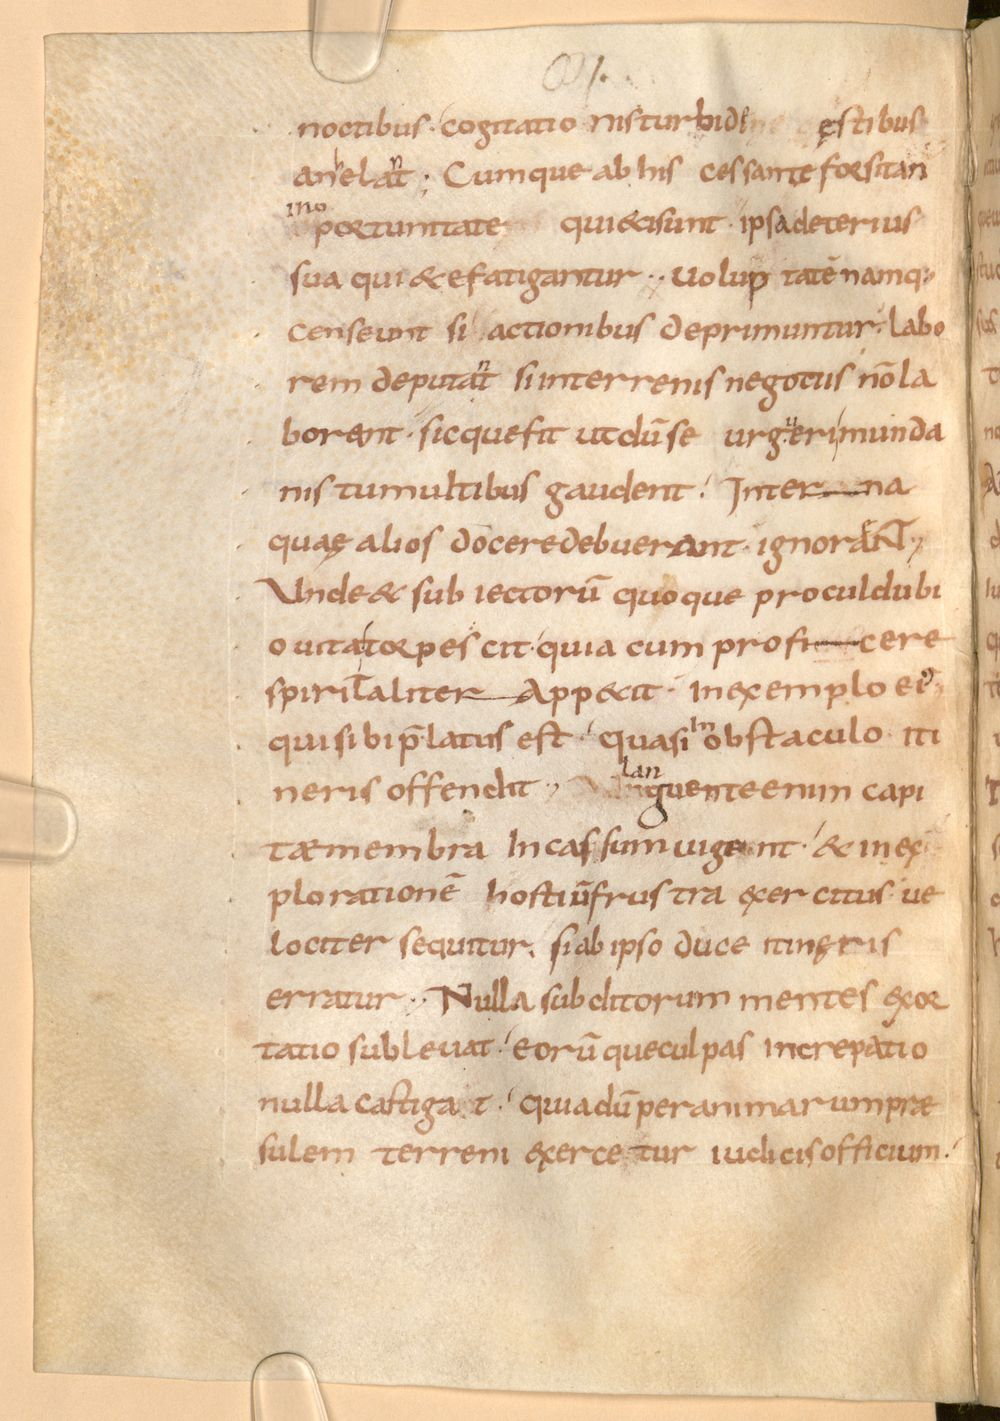 noctibus · cogitatio nis turbide estibus
anhelant ; Cumque ab his cessante forsitan
ino
portunitate qui&isunt · ipsa deterius
sua qui&e fatigantur ·, uolup tatē namq;
censeunt si actionibus deprimuntur · labo
rem deputant si in terrenis negotiis nō la
borent · sicque fit ut dū se urgueri munda
nis tumultibus gaudent · Inter na
quaę alios docere debuerant · ignorant ·,
Vnde & sub iectorū quoque proculdubi
o uita torpes cit · quia cum profi cere
spiritaliter App&it · in exemplo ei;
qui sibi p̄latus est · quasi in obstaculo iti
neris offendit ·,
lan
guente enim capi
tæ membra Incassum uigent · & in ex
plorationē hostiū frustra exercitus · ue
lociter sequitur · si ab ipso duce itineris
erratur ·, Nulla subditorum mentes exor
tatio subleuat · eorūque culpas increpatio
nulla castiga t · quia dū per animarum præ
sulem terreni exerce tur iudicis officium ·